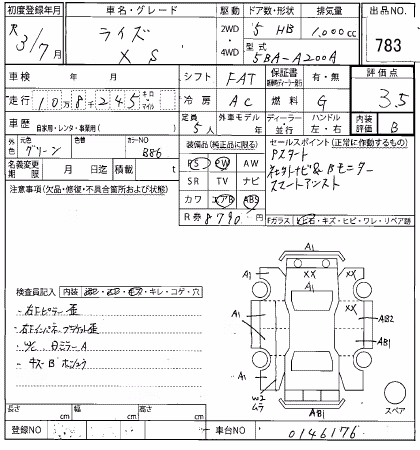 初度登録年月
R 3/7月
車名・グレード
ライズ
X S
駆動
2WD
4WD
ドア数・形状
5 HB
排気量
1.000cc
型式
5BA-A200A
出品NO.
783
車検 年 月
シフト FAT
保証書 有・無
評価点
3.5
走行 10万8千245 キロ マイル
冷房 AC
燃料 G
車歴 自家用・レンタ・事業用( )
定員 5人
外車モデル 年
ディーラー・並行
ハンドル 左・右
内装評価 B
外色 元色 グリーン
色替
カラーNO B86
名義変更期限 月 日迄
積載 t
装備品(純正品に限る)
PS PW AW
SR TV ナビ
カワ エアB ABS
R券 8790円
セールスポイント(正常に作動するもの)
Pスタート
ネオトナビ&Bモニター
スマートアシスト
Fガラス 飛石・キズ・ヒビ・ワレ・リペア跡
注意事項(欠品・修復・不具合箇所および状態)
検査員記入 内装 キレ・コゲ・穴
右Fピラー歪
右Fインパネブラケット歪
W/C 日ミラーA
キズB
A1
A1
XX
XX
A1
A1
A1
AB2
AB1
W2
ムラ
AB1
スペア
長さ cm
幅 cm
高さ cm
登録NO
車台NO 0146176